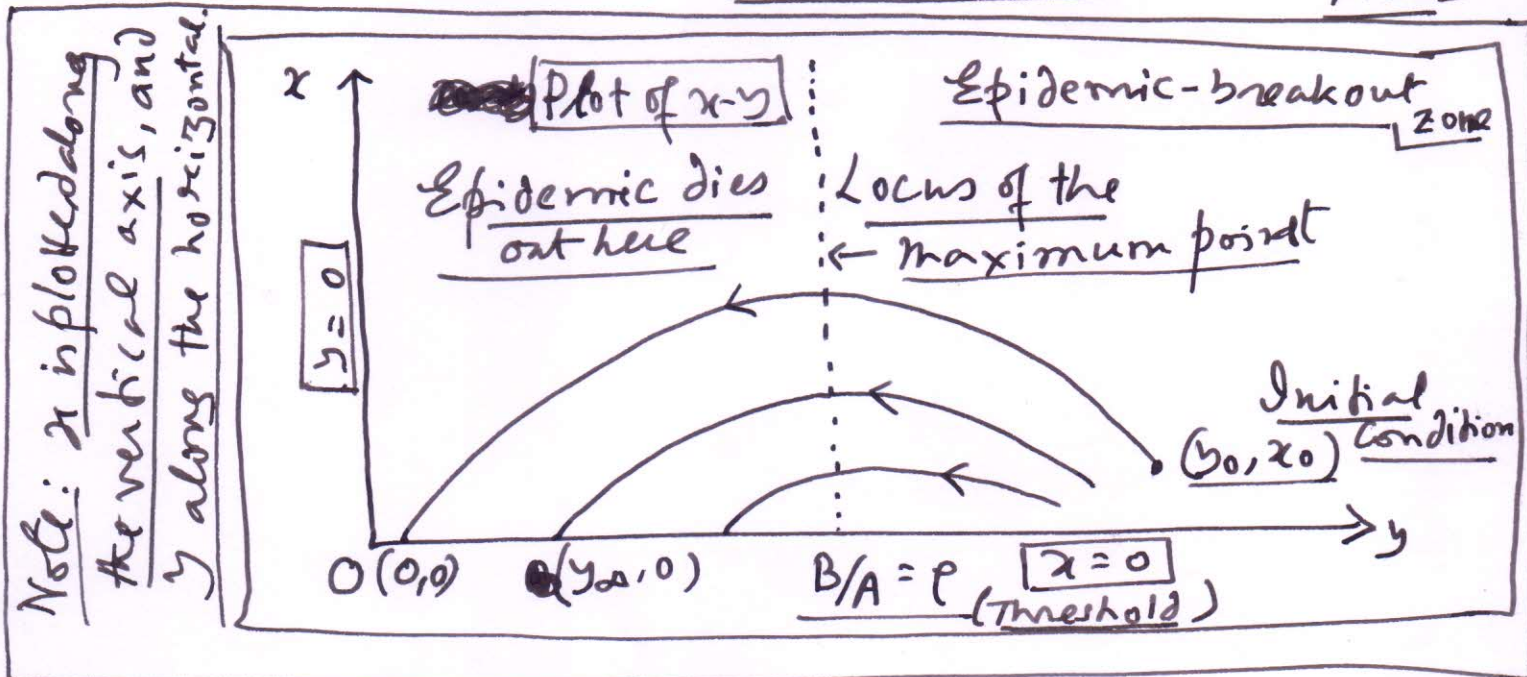 Note: x is plotted along
the vertical axis, and
y along the horizontal.
x
Plot of x-y
Epidemic-breakout
zone
Epidemic dies
out here
Locus of the
← maximum point
y = 0
Initial
condition
(y₀, x₀)
y
O (0,0)
(y∞, 0)
B/A = ρ
(Threshold)
x = 0